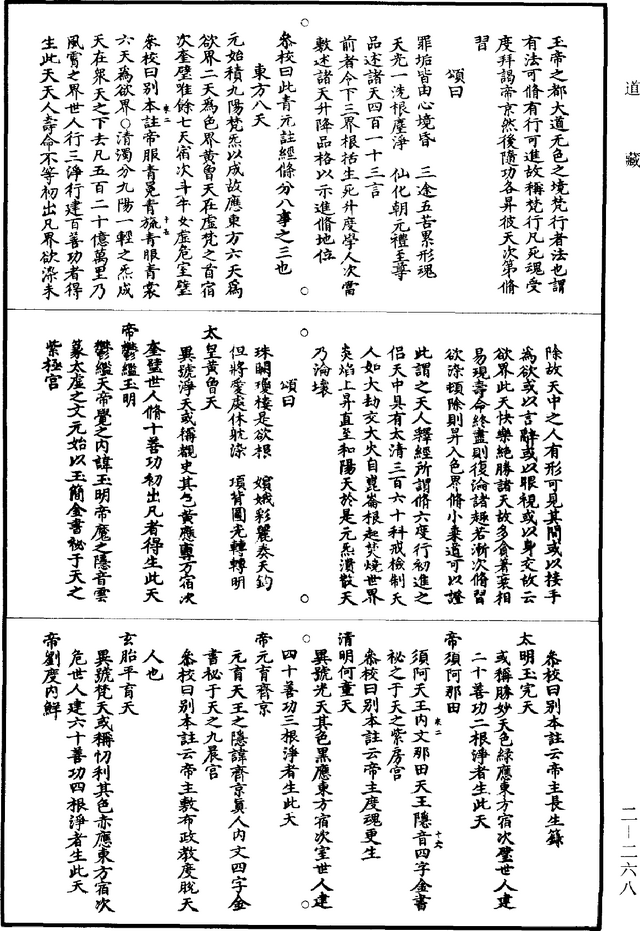 道藏
玉帝之都大道无色之境梵行者法也謂
有法可脩有行可進故稱梵行凡死魂受
度拜謁帝京然後隨功各昇彼天次第脩
習
頌曰
罪垢皆由心境昏　三途五苦累形魂
天光一洗根塵淨　仙化朝元禮至尊
品述諸天四百一十三言
前者今下三界根括生死升度學人次當
敷述諸天升降品格以示進脩地位
叅校曰此青元註經條分八事之三也
東方八天
元始積九陽梵炁以成故應東方六天爲
欲界二天爲色界黃曾天在虛梵之首宿
次奎壁雖餘七天宿次斗牛女虛危室壁
叅校曰别本註帝服青冕青旒青服青裳
六天爲欲界○清濁分九陽一輕之炁成
天在衆天之下去凡五百二十億萬里乃
風霄之界世人行三淨行建百善功者得
生此天天人壽命不等初出凡界欲染未
除故天中之人有形可見其間或以接手
爲欲或以言辭或以眼視或以身交故云
欲界此天快樂絶勝諸天故多貪著衰相
易現壽命終盡則復淪諸趣若漸次脩習
欲染頓除則昇入色界脩小乘道可以證
此謂之天人釋經所謂脩六度行初進之
侣天中具有太清三百六十科戒檢制天
人如大劫交大火自崑崙根起焚燒世界
炎焰上昇直至和陽天於是元炁潰散天
乃淪壞
頌曰
珠闕瓊樓是欲根　嬪娥彩麗奏天鈞
但將愛處休躭染　項背圓光轉轉明
太皇黄曾天
異號淨天或稱覩史其色黄應東方宿次
奎壁世人脩十善功初出凡者得生此天
帝鬱繿玉明
鬱繿天帝覺之内諱玉明帝魔之隱音雲
篆太虛之文元始以玉簡金書祕于天之
紫極宫
叅校曰别本註云帝主長生籙
太明玉完天
或稱勝妙天色綠應東方宿次壁世人建
二十善功二根淨者生此天
帝須阿那田
須阿天王内文那田天王隱音四字金書
祕之于天之紫房宫
叅校曰别本註云帝主度魂更生
清明何童天
異號光天其色黑應東方宿次室世人建
四十善功三根淨者生此天
帝元育齊京
元育天王之隱諱齊京真人内文四字金
書祕于天之九晨宫
叅校曰别本註云帝主敷布政教度脫天
人也
玄胎平育天
異號梵天或稱忉利其色赤應東方宿次
危世人建六十善功四根淨者生此天
帝劉度内鮮
二—二六八